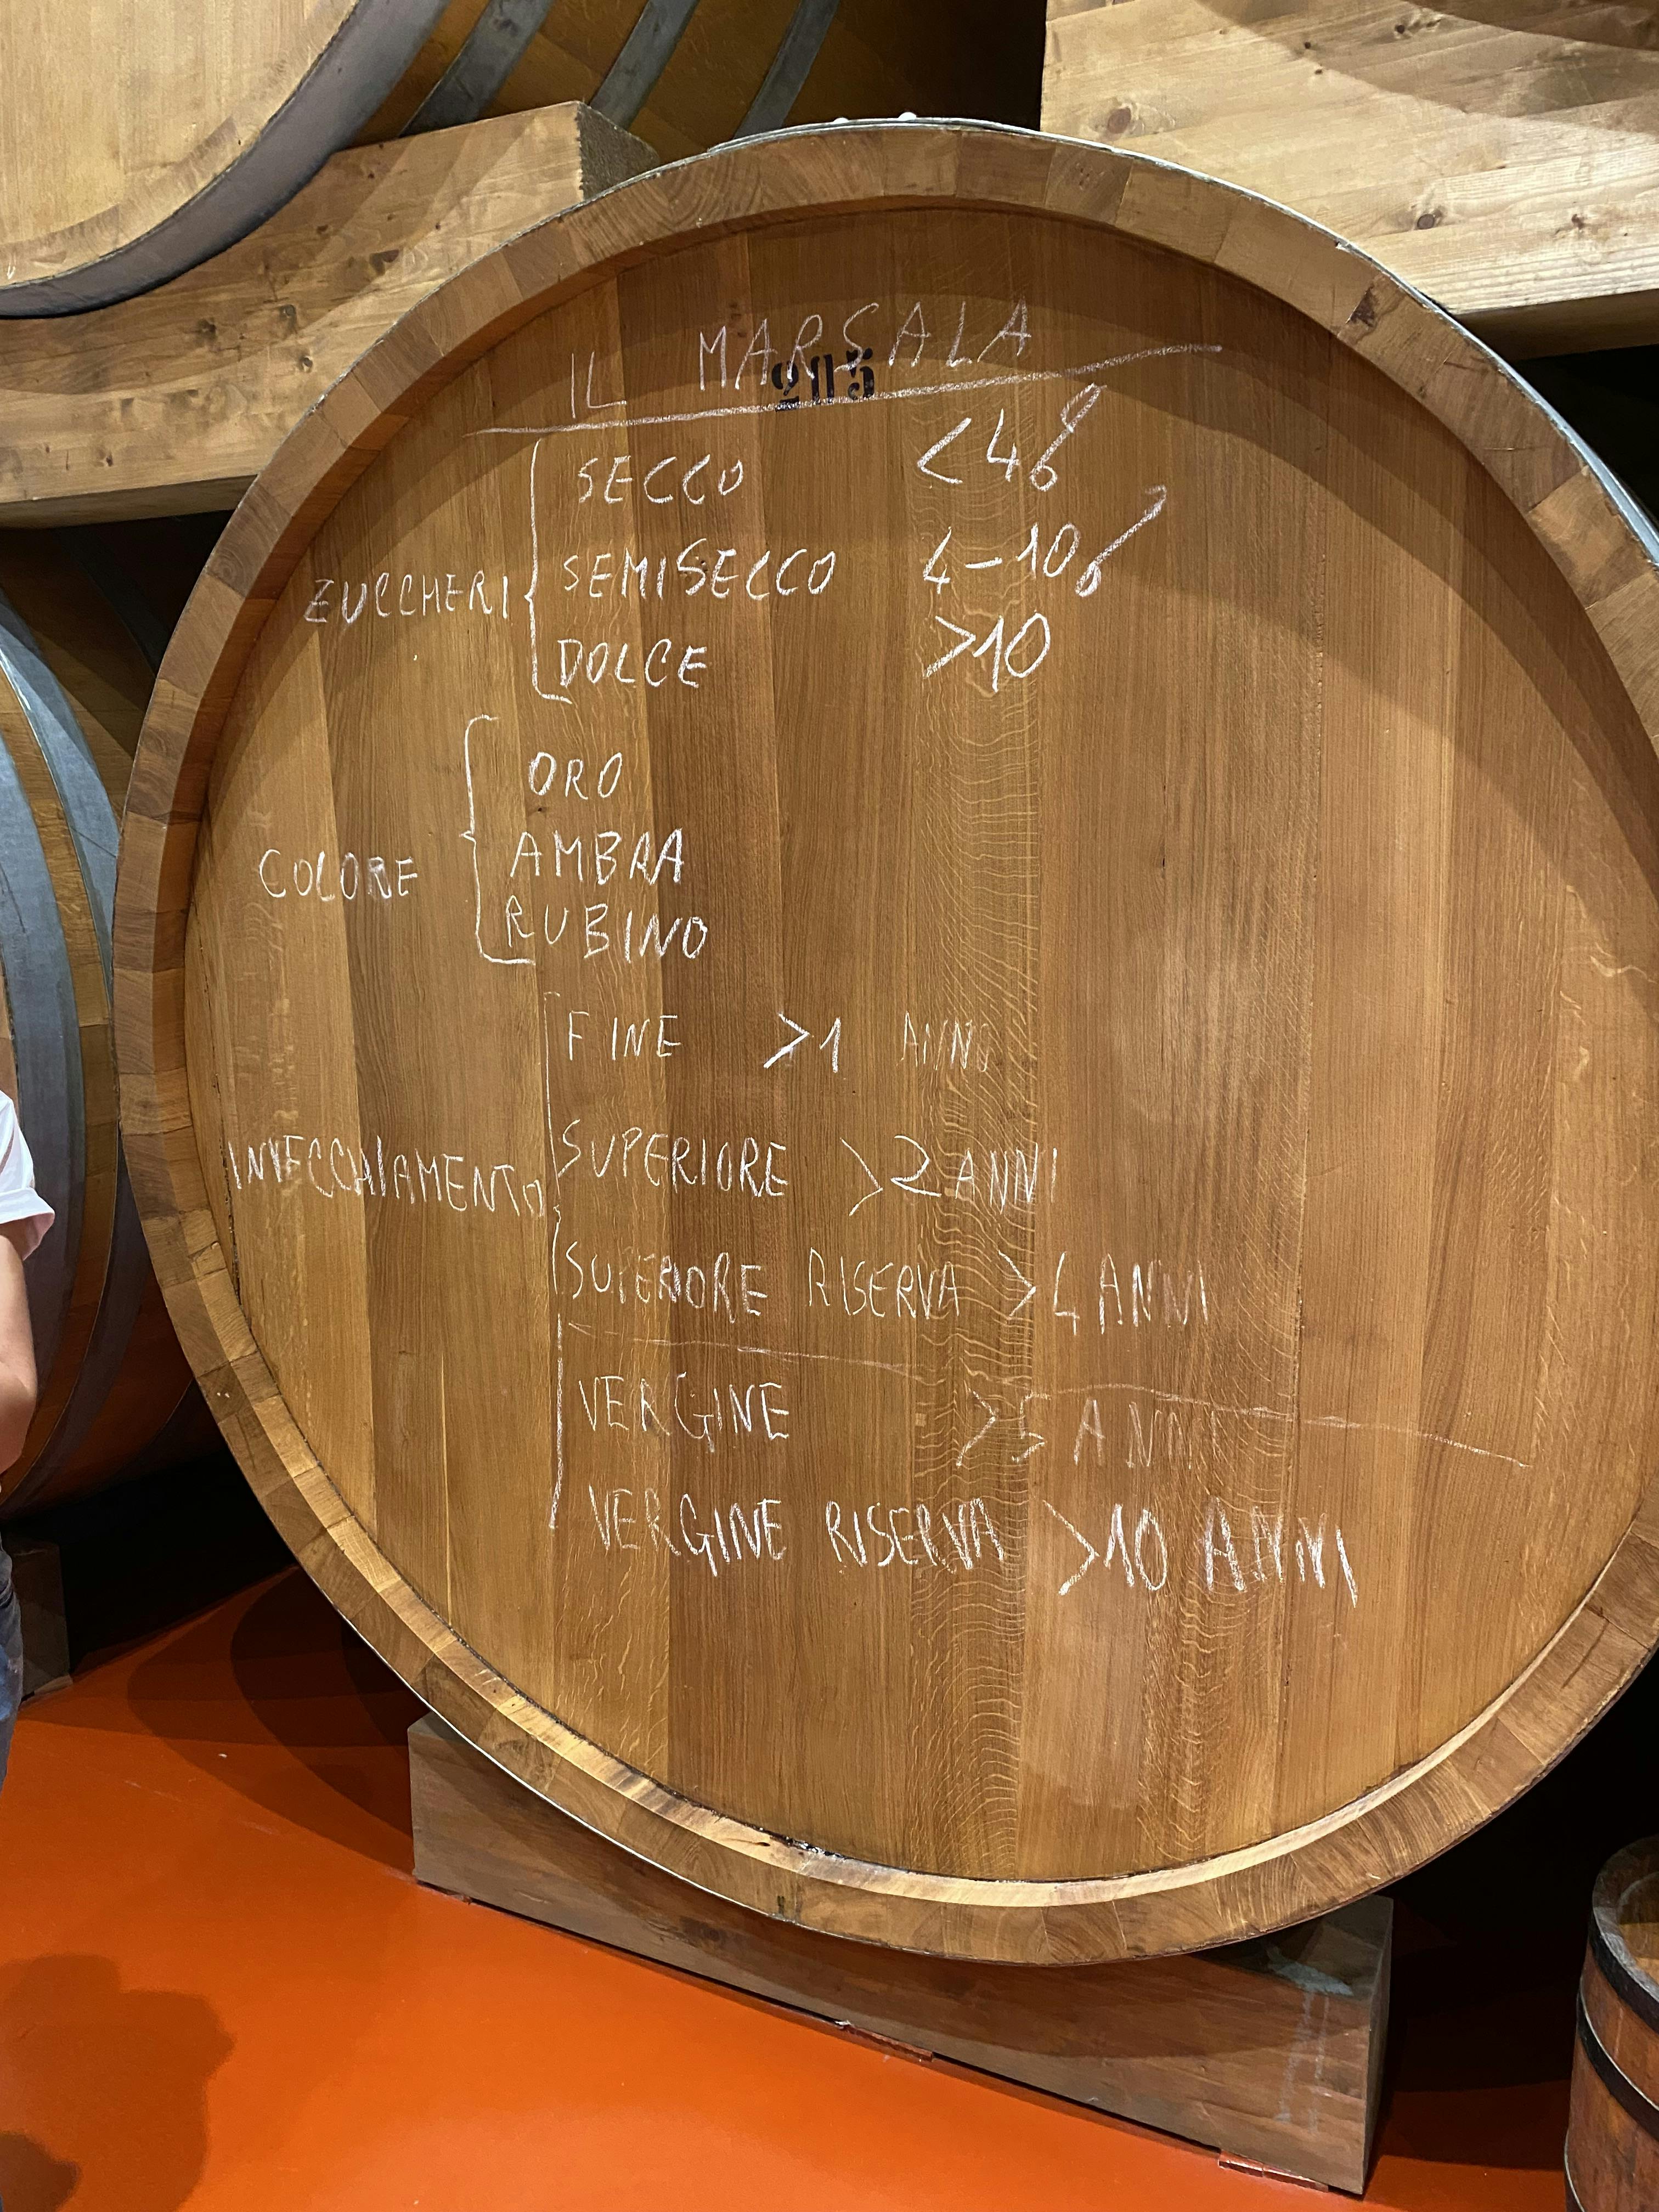 IL MARSALA
205
ZUCCHERI
SECCO <4%
SEMISECCO 4-10%
DOLCE >10
COLORE
ORO
AMBRA
RUBINO
INVECCHIAMENTO
FINE >1 ANNO
SUPERIORE >2 ANNI
SUPERIORE RISERVA >4 ANNI
VERGINE >5 ANNI
VERGINE RISERVA >10 ANNI